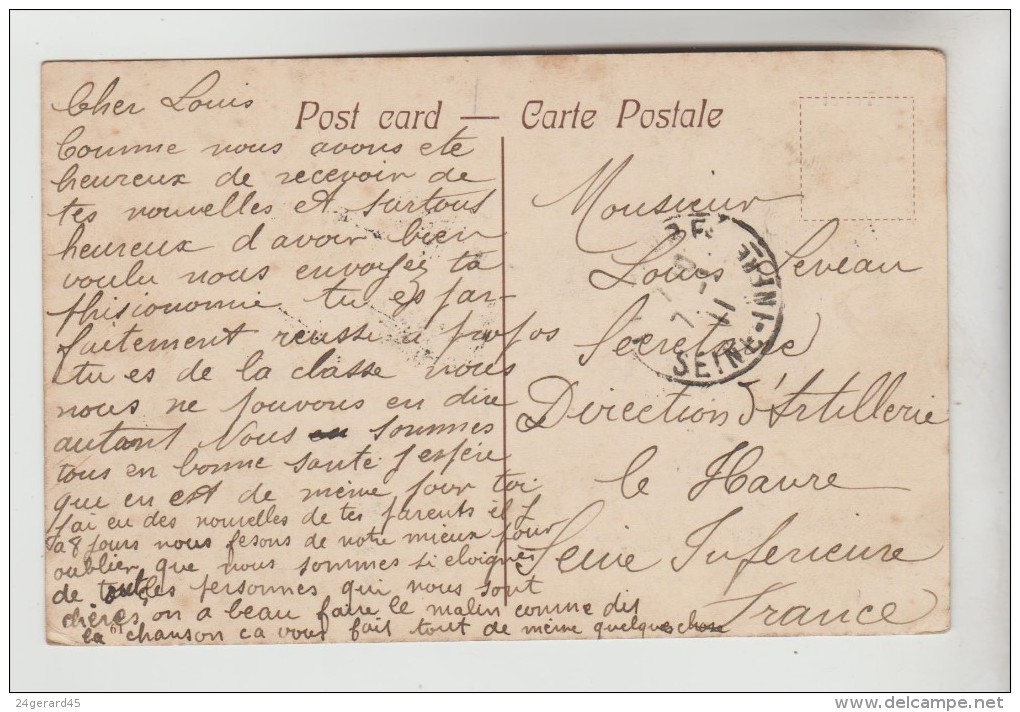 Post card — Carte Postale
Cher Louis
Comme nous avons ete
heureux de recevoir de
tes nouvelles et surtous
heureux d'avoir bien
voulu nous envoyez ta
phisionomie tu es par-
faitement reussi a propos
tu es de la classe nous
nous ne pouvons en dire
autant Nous en sommes
tous en bonne santé j'espère
que en est de même pour toi
j'ai eu des nouvelles de tes parents il y
a 8 jours nous fesons de notre mieux pour
oublier que nous sommes si eloignes
de toutes les personnes qui nous sont
chères on a beau faire le malin comme dis
la chanson ca vous fait tout de même quelque chose
Monsieur
Louis Leveau
Secretaire
Direction d'Artillerie
le Havre
Seine Inferieure
France
SEINE-INFRE
24gerard45
www.delcampe.net